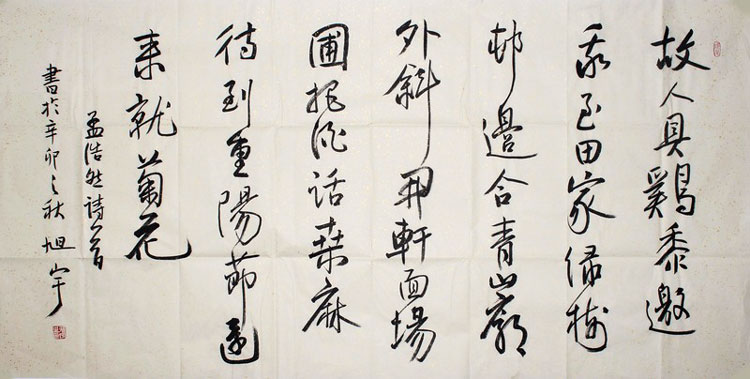 故人具鷄黍邀
我至田家緑樹
邨邊合青山郭
外斜開軒面場
圃把酒話桑麻
待到重陽節還
来就菊花
孟浩然詩一首
書於辛卯之秋 旭宇